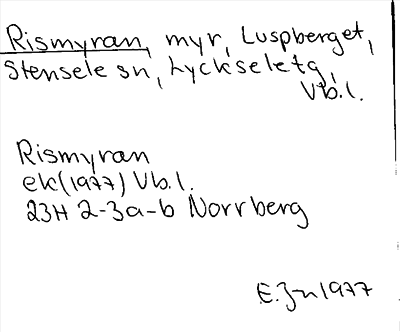 Rismyran, myr, Luspberget,
Stensele sn, Lyckseletg,
Vb.l.
Rismyran
ek(1977) Vb.l.
23H 2-3a-b Norrberg
E.Jn 1977